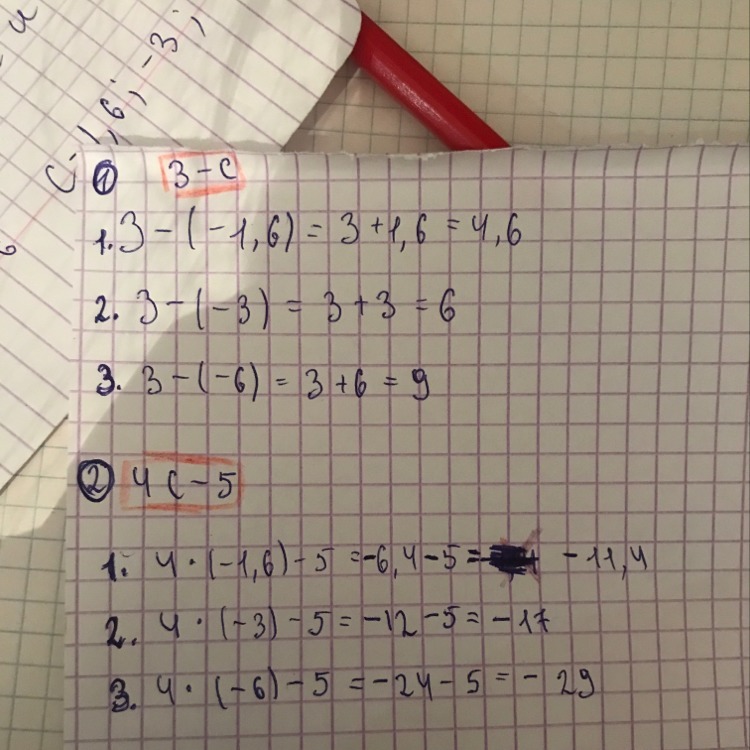 C -1,6; -3;
① 3-c
1. 3-(-1,6) = 3+1,6 = 4,6
2. 3-(-3) = 3+3 = 6
3. 3-(-6) = 3+6 = 9
② 4c-5
1. 4·(-1,6)-5 =-6,4-5= -11,4
2. 4·(-3)-5=-12-5=-17
3. 4·(-6)-5=-24-5=-29